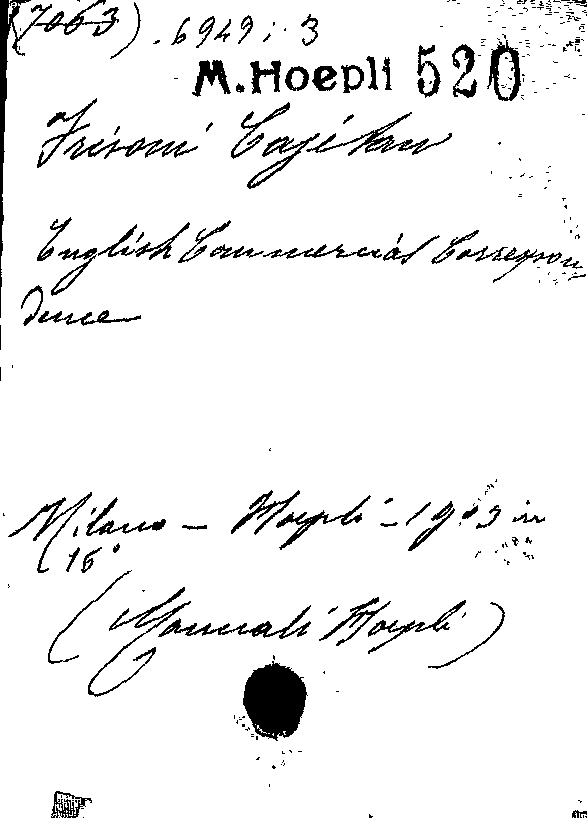 (7063) . 6949 ; 3
M. Hoepli 520
Frisoni Cajetan
English Commercial Correspon
dence
Milano - Hoepli - 1903 in
16°
(Manuali Hoepli)